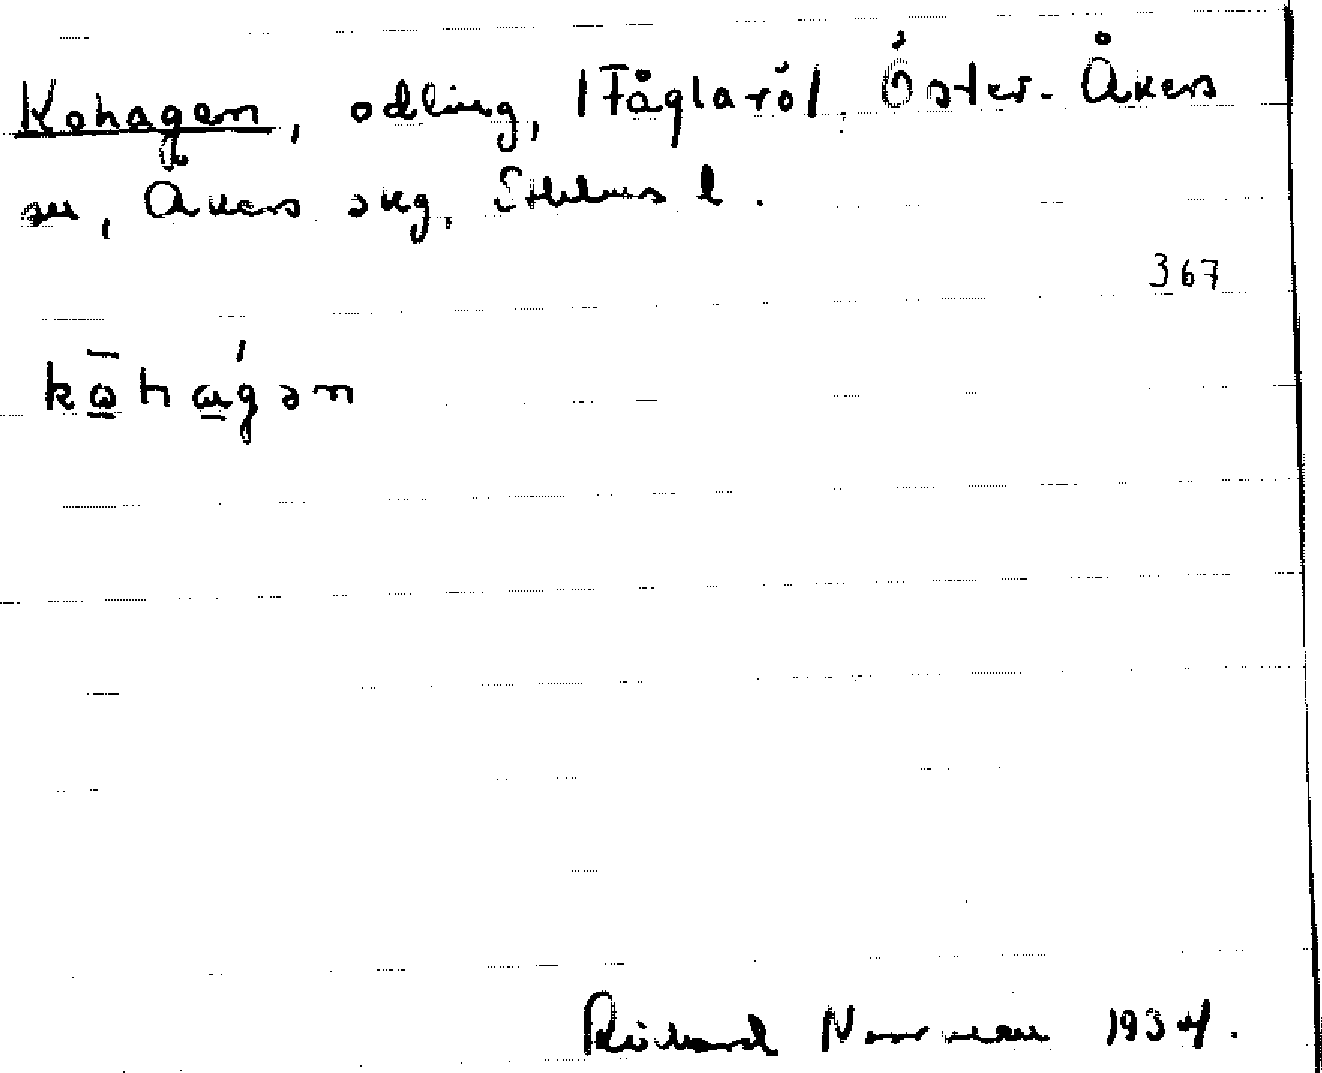 Kohagen, odling, /Fåglarö/, Öster-Åkers
sn, Åkers skg, Sthlms l.
367
kōhágən
Richard Norrman 1934.